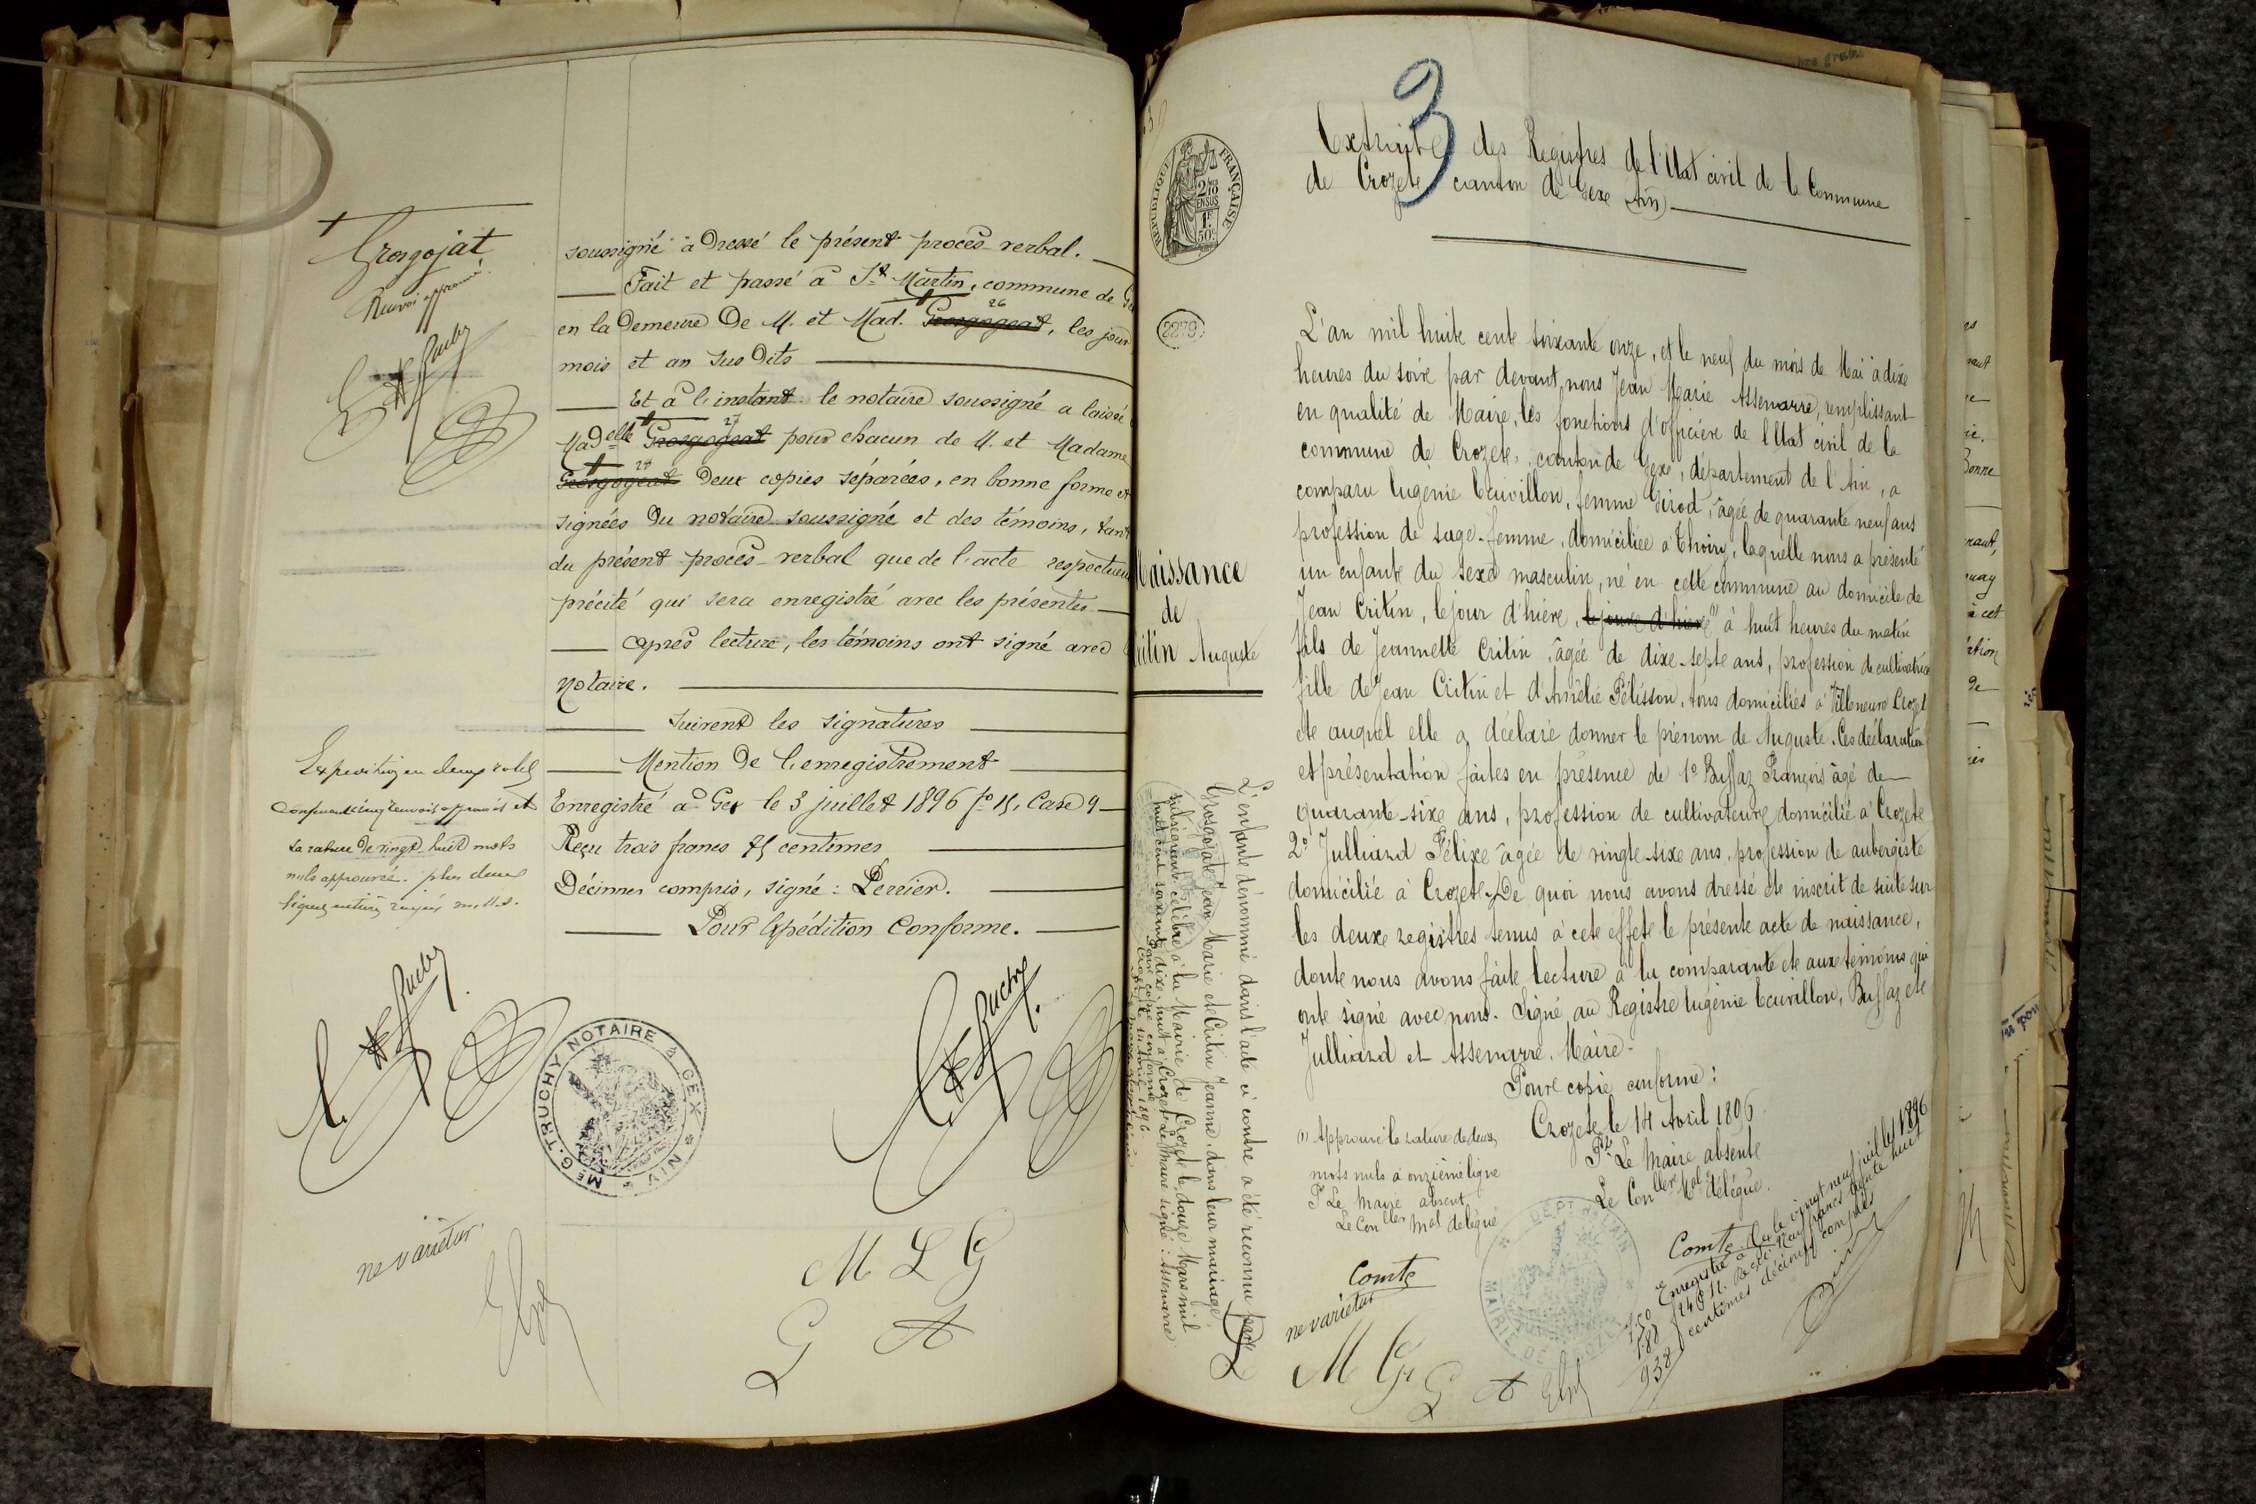 Grosgojat
Renvoi approuvé
soussigné a dressé le présent procès-verbal.
Fait et passé à St Martin, commune de
en la demeure de M. et Mad. Grosgogeat, les jour
26
mois et an sus dits
Et à l'instant le notaire soussigné a laissé
27
Madelle Grosgogeat pour chacun de M. et Madame
28
Grosgogeat deux copies séparées, en bonne forme et
signées du notaire soussigné et des témoins, tant
du présent procès-verbal que de l'acte respectueux
précité qui sera enregistré avec les présentes
Après lecture, les témoins ont signé avec
notaire.
Suivent les signatures
Mention de l'enregistrement
Enregistré à Gex le 3 juillet 1896 fo 15, Case 9
Reçu trois francs 75 centimes
Décimes compris, signé : Perrier.
Pour Expédition Conforme.
Expédition en deux rôles
contenant cinq renvois approuvés et
la rature de vingt huit mots
nuls approuvée. plus deux
lignes entières rayées nulles.
Me G. TRUCHY NOTAIRE à GEX * AIN *
ne varietur
M L G
G A
3
Extraite des Registres de l'Etat civil de la Commune
de Crozete canton de Gexe (Ain)
RÉPUBLIQUE FRANÇAISE
2/10 EN SUS
1F 50C
2279
Naissance
de
Critin Auguste
L'an mil huite cente soixante onze, et le neuf du mois de Mai à dixe
heures du soire par devant nous Jean Marie Assenarre, remplissant
en qualité de Maire, les fonctions d'officiere de l'Etat civil de la
commune de Crozete, canton de Gexe, département de l'Ain, a
comparu Eugénie Cauvillon, femme Girod, âgée de quarante neuf ans
profession de sage-femme, domiciliée à Thoiry, laquelle nous a présenté
un enfante du sexe masculin, né en cette commune au domicile de
Jean Critin, le jour d'hière, le joure d'hière (1) à huit heures du matin
fils de Jeannette Critin, âgée de dixe-septe ans, profession de cultivatrice
fille de Jean Critin et d'Amélie Pélisson, tous domiciliés à Villeneuve Crozet
ete auquel elle a déclaré donner le prénom de Auguste. Ces déclaration
et présentation faites en présence de 1o Buffaz François âgé de
quarante-sixe ans, profession de cultivateure domicilié à Crozete
2o Julliard Félixe âgée de vingte-sixe ans, profession de aubergiste
domiciliée à Crozete. De quoi nous avons dressé ete inscrit de suite sur
les deuxe registres tenus à cete effete le présente acte de naissance,
donte nous avons faite lecture à la comparante ete auxe témoins qui
onte signé avec nous. Signé au Registre Eugénie Cauvillon, Buffaz ete
Julliard et Assenarre, Maire.
Poure copie conforme :
Crozete le 14 Avril 1896
Pr Le Maire absente
Le Conller Mal délégué.
Comte
(1) Approuvé la rature de deux
mots nuls à onzième ligne
Pr Le Maire absent
Le Conller Mal délégué
Comte
ne varietur
L'enfante dénommé dans l'acte ci contre a été reconnu par
Grosgojate Jean Marie ete Critin Jeanne, dans leur mariage
subséquent célébré à la Mairie de Crozete le douze Mars mil
huit cent soixante dixe-huit à Crozet. Le Maire signé : Assenarre
Pour copie conforme
Crozet le 14 Avril 1896
DÉPT DE L'AIN
MAIRIE DE CROZET
Enregistré à Gex le vingt neuf juillet 1896
Reçu neuf francs trente huit
centimes décimes compris
7.50
1.88
9.38
M G
G A